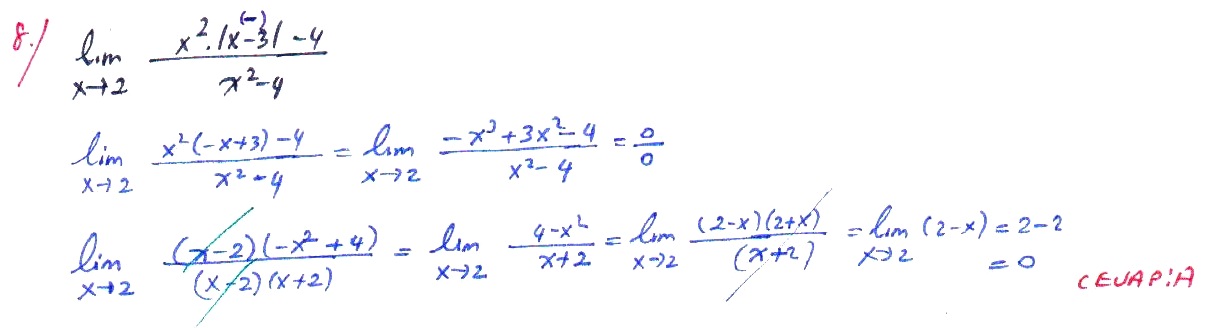 8.) lim x→2 (x².|x-3| - 4)/(x²-4) (-)
lim x→2 (x²(-x+3) - 4)/(x²-4) = lim x→2 (-x³+3x²-4)/(x²-4) = 0/0
lim x→2 ((x-2)(-x²+4))/((x-2)(x+2)) = lim x→2 (4-x²)/(x+2) = lim x→2 ((2-x)(2+x))/(x+2) = lim x→2 (2-x) = 2-2
= 0
CEVAP:A